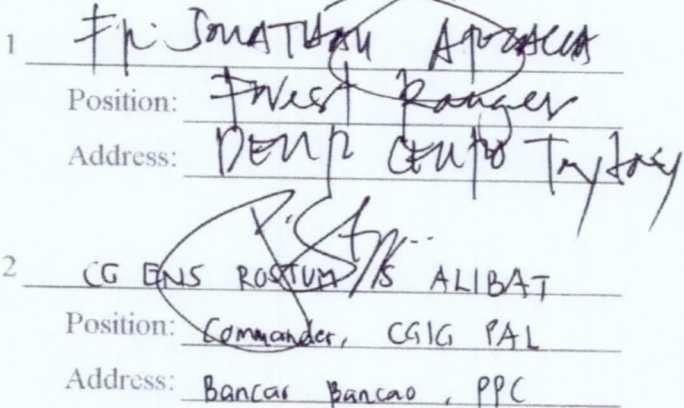 1 Fr. JONATHAN
Position: Forest Ranger
Address: DENR CENRO Taytay
2 CG ENS ROSTUM S ALIBAT
Position: Commander, CGIG PAL
Address: Bancao Bancao, PPC